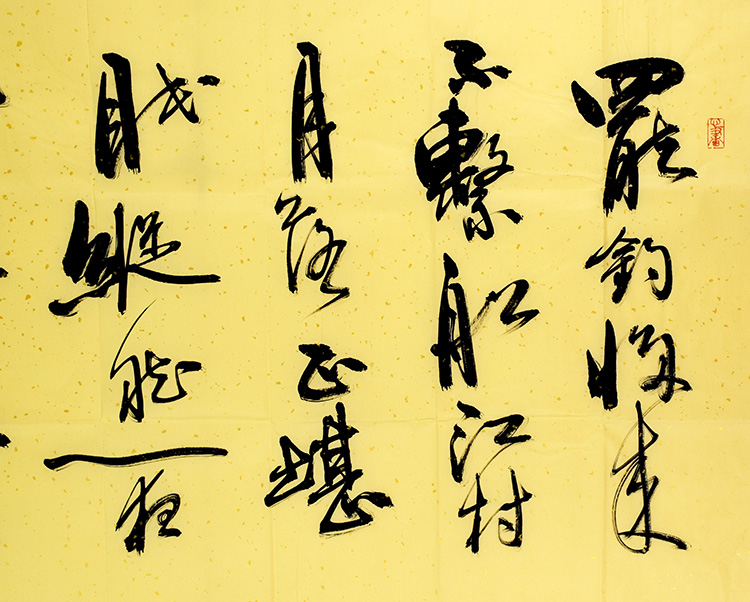 罷釣歸來
不繫船江村
月落正堪
眠縱然一夜